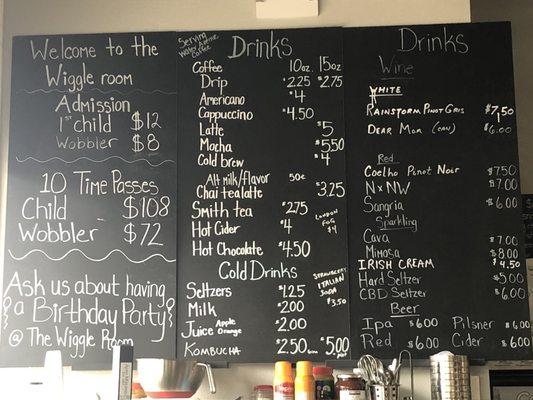 Welcome to the
Wiggle room
Admission
1st child $12
Wobbler $8
10 Time Passes
Child $108
Wobbler $72
Ask us about having
a Birthday Party
@ The Wiggle Room
Serving
Drinks
Coffee 10oz 15oz
Drip $2.25 $2.75
Americano $4
Cappuccino $4.50
Latte $5
Mocha $5.50
Cold brew $4
Alt milk/flavor 50¢
Chai tea latte $3.25
Smith tea $2.75
Hot Cider $4
London
Fog
$4
Hot Chocolate $4.50
Cold Drinks
Seltzers $1.25
Milk $2.00
Juice Apple Orange $2.00
Strawberry
Italian
Soda
$3.50
Kombucha $2.50 $5.00
Drinks
Wine
White
Rainstorm Pinot Gris $7.50
Dear Mom (can) $6.00
Red
Coelho Pinot Noir $7.50
NxNW $7.00
Sangria $6.00
Sparkling
Cava $7.00
Mimosa $8.00
Irish Cream $4.50
Hard Seltzer $5.00
CBD Seltzer $6.00
Beer
Ipa $6.00 Pilsner $6.00
Red $6.00 Cider $6.00